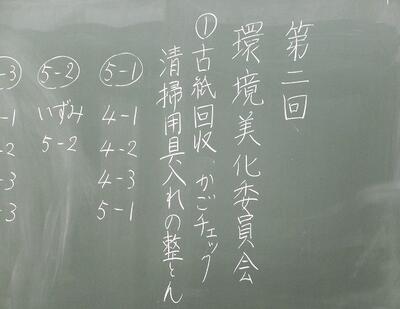 第二回
環境美化委員会
①古紙回収 かごチェック
清掃用具入れの整とん
5-1
4-1
4-2
4-3
5-1
5-2
いずみ
5-2
-3
-1
-2
-3
-3